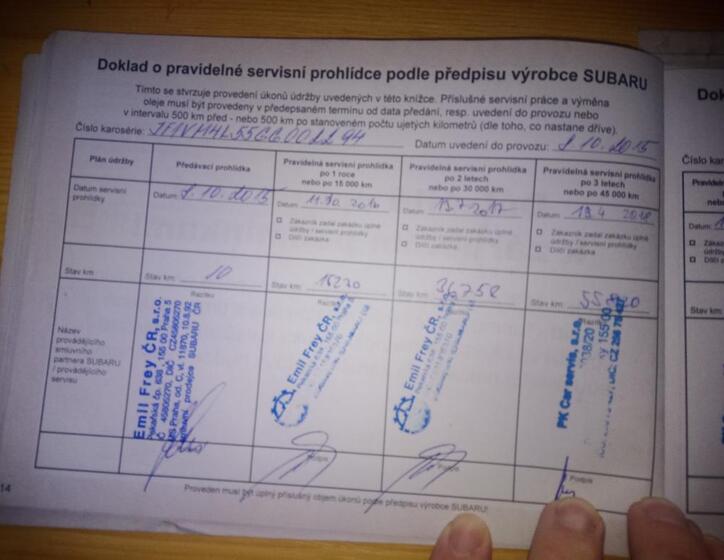 Doklad o pravidelné servisní prohlídce podle předpisu výrobce SUBARU
Tímto se stvrzuje provedení úkonů údržby uvedených v této knížce. Příslušné servisní práce a výměna
oleje musí být provedeny v předepsaném termínu od data předání, resp. uvedení do provozu nebo
v intervalu 500 km před - nebo 500 km po stanoveném počtu ujetých kilometrů (dle toho, co nastane dříve).
Číslo karosérie: Datum uvedení do provozu: 8.10.2015
Plán údržby
Předávací prohlídka
Pravidelná servisní prohlídka
po 1 roce
nebo po 15 000 km
Pravidelná servisní prohlídka
po 2 letech
nebo po 30 000 km
Pravidelná servisní prohlídka
po 3 letech
nebo po 45 000 km
Datum servisní
prohlídky
Datum: 8.10.2015
Datum: 11.10.2016
Zákazník zadal zakázku úplné
údržby / servisní prohlídky
Dílčí zakázka
Datum: 2017
Zákazník zadal zakázku úplné
údržby / servisní prohlídky
Dílčí zakázka
Datum: 19.4 2018
Zákazník zadal zakázku úplné
údržby / servisní prohlídky
Dílčí zakázka
Stav km
Stav km: 10
Stav km:
Stav km: 36758
Stav km:
Název
provádějícího
smluvního
partnera SUBARU
/ provádějícího
servisu
Razítko
Emil Frey ČR, s.r.o.
Pekařská čp. 638, 155 00 Praha 5
IČ 45806270, DIČ CZ45806270
MS Praha, od. C, vl. 11870, 10.8.92
prodejce SUBARU ČR
Razítko
Emil Frey ČR, s.r.o.
Emil Frey ČR, s.r.o.
PK Car servis, s.r.o.
155 00
Podpis
Podpis
Podpis
Proveden musí být úplný příslušný objem úkonů podle předpisu výrobce SUBARU!
14